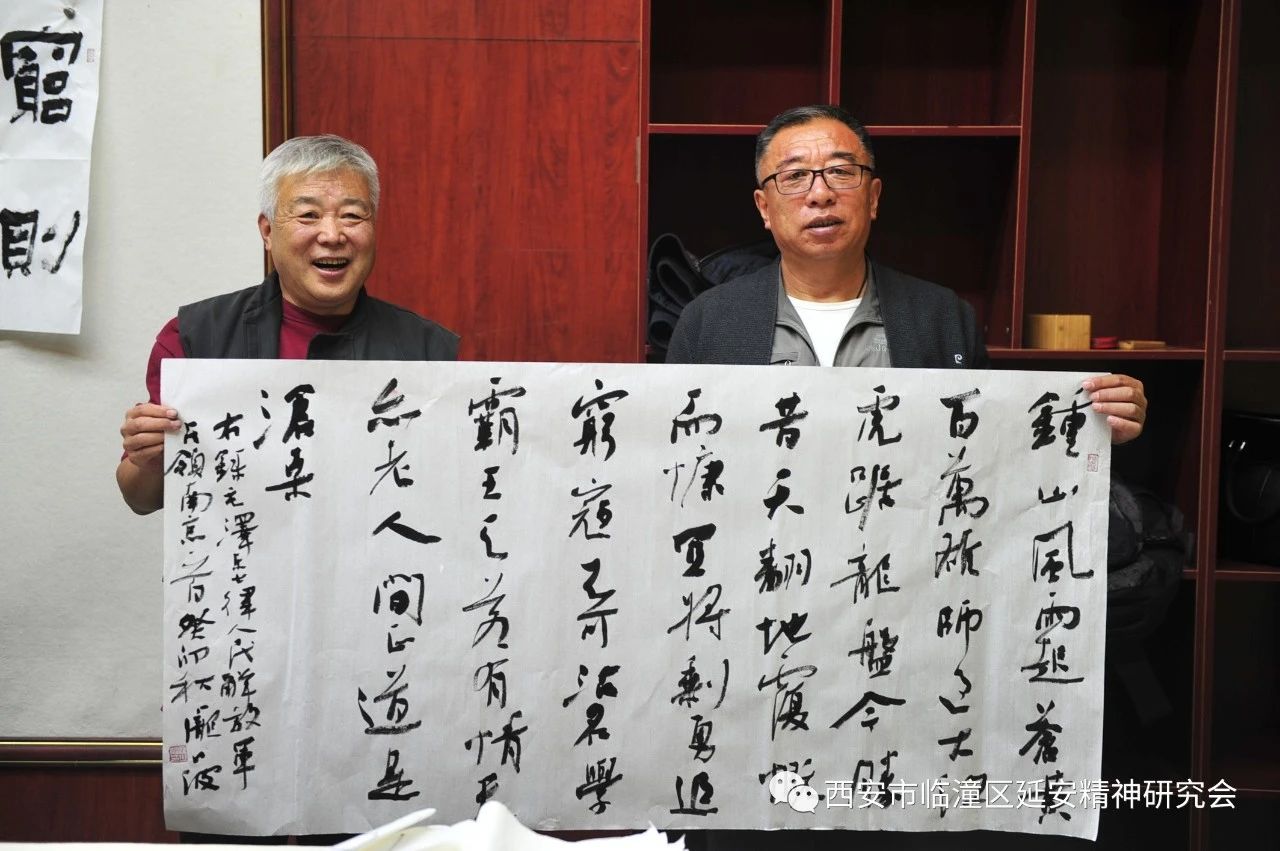 則
鍾山風雨起蒼黃
百萬雄師過大江
虎踞龍盤今勝
昔天翻地覆慨
而慷宜將剩勇追
窮寇不可沽名學
霸王天若有情天
亦老人間正道是
滄桑
右錄毛澤東七律人民解放軍
占領南京一首癸卯秋波
西安市临潼区延安精神研究会